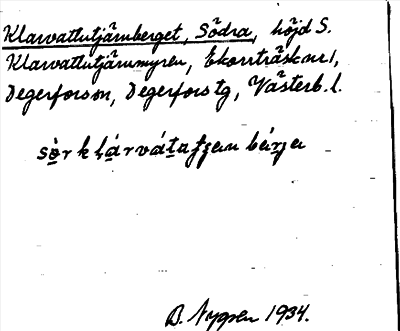 Klarvattutjärnberget, Södra, höjd S.
Klarvattutjärnmyren, Ekorrträsk nr 1,
Degerfors sn, Degerfors tg, Västerb. l.
sò̱r kḷá̱rváṯaṯʃean bärja
B. Nygren 1934.